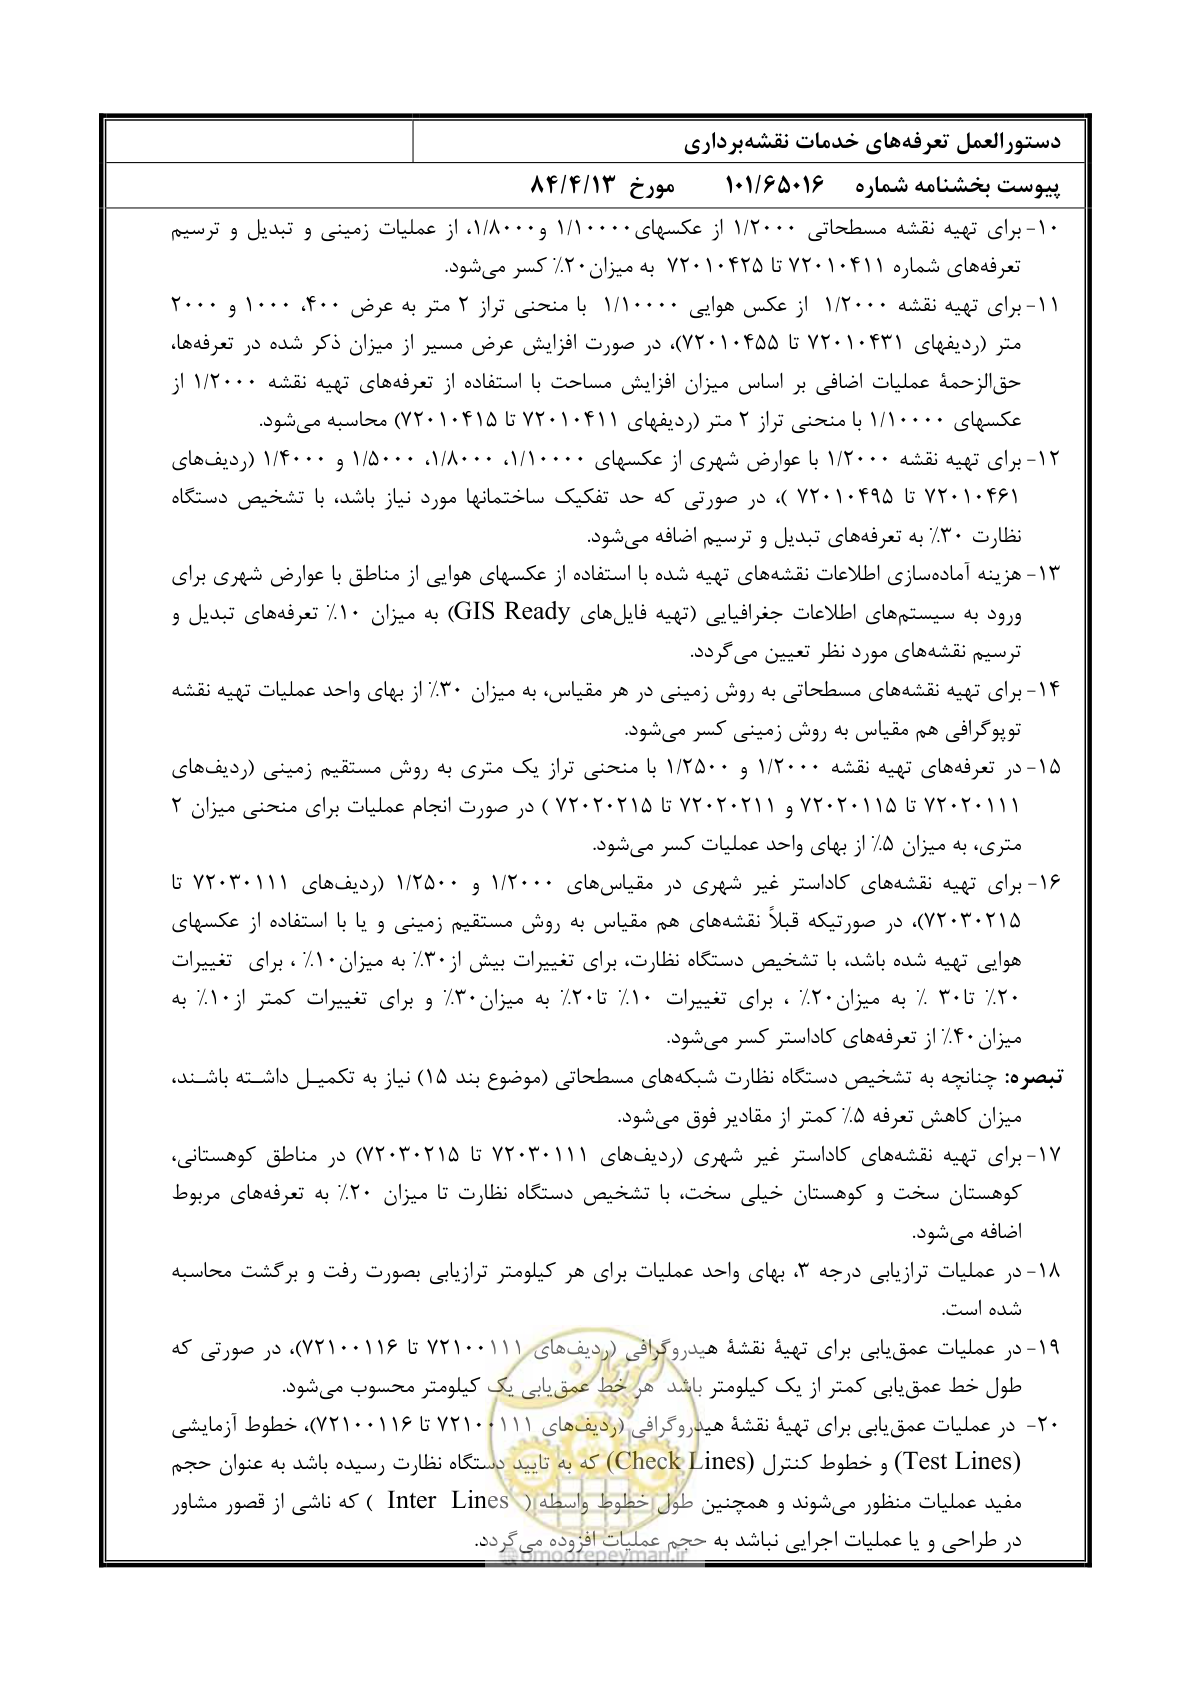 دستورالعمل تعرفه‌های خدمات نقشه‌برداری
پیوست بخشنامه شماره ۱۰۱/۶۵۰۱۶ مورخ ۸۴/۴/۱۳
۱۰- برای تهیه نقشه مسطحاتی ۱/۲۰۰۰ از عکسهای۱/۱۰۰۰۰ و۱/۸۰۰۰، از عملیات زمینی و تبدیل و ترسیم
تعرفه‌های شماره ۷۲۰۱۰۴۱۱ تا ۷۲۰۱۰۴۲۵ به میزان۲۰٪ کسر می‌شود.
۱۱- برای تهیه نقشه ۱/۲۰۰۰ از عکس هوایی ۱/۱۰۰۰۰ با منحنی تراز ۲ متر به عرض ۴۰۰، ۱۰۰۰ و ۲۰۰۰
متر (ردیفهای ۷۲۰۱۰۴۳۱ تا ۷۲۰۱۰۴۵۵)، در صورت افزایش عرض مسیر از میزان ذکر شده در تعرفه‌ها،
حق‌الزحمهٔ عملیات اضافی بر اساس میزان افزایش مساحت با استفاده از تعرفه‌های تهیه نقشه ۱/۲۰۰۰ از
عکسهای ۱/۱۰۰۰۰ با منحنی تراز ۲ متر (ردیفهای ۷۲۰۱۰۴۱۱ تا ۷۲۰۱۰۴۱۵) محاسبه می‌شود.
۱۲- برای تهیه نقشه ۱/۲۰۰۰ با عوارض شهری از عکسهای ۱/۱۰۰۰۰، ۱/۸۰۰۰، ۱/۵۰۰۰ و ۱/۴۰۰۰ (ردیف‌های
۷۲۰۱۰۴۶۱ تا ۷۲۰۱۰۴۹۵ )، در صورتی که حد تفکیک ساختمانها مورد نیاز باشد، با تشخیص دستگاه
نظارت ۳۰٪ به تعرفه‌های تبدیل و ترسیم اضافه می‌شود.
۱۳- هزینه آماده‌سازی اطلاعات نقشه‌های تهیه شده با استفاده از عکسهای هوایی از مناطق با عوارض شهری برای
ورود به سیستم‌های اطلاعات جغرافیایی (تهیه فایل‌های GIS Ready) به میزان ۱۰٪ تعرفه‌های تبدیل و
ترسیم نقشه‌های مورد نظر تعیین می‌گردد.
۱۴- برای تهیه نقشه‌های مسطحاتی به روش زمینی در هر مقیاس، به میزان ۳۰٪ از بهای واحد عملیات تهیه نقشه
توپوگرافی هم مقیاس به روش زمینی کسر می‌شود.
۱۵- در تعرفه‌های تهیه نقشه ۱/۲۰۰۰ و ۱/۲۵۰۰ با منحنی تراز یک متری به روش مستقیم زمینی (ردیف‌های
۷۲۰۲۰۱۱۱ تا ۷۲۰۲۰۱۱۵ و ۷۲۰۲۰۲۱۱ تا ۷۲۰۲۰۲۱۵ ) در صورت انجام عملیات برای منحنی میزان ۲
متری، به میزان ۵٪ از بهای واحد عملیات کسر می‌شود.
۱۶- برای تهیه نقشه‌های کاداستر غیر شهری در مقیاس‌های ۱/۲۰۰۰ و ۱/۲۵۰۰ (ردیف‌های ۷۲۰۳۰۱۱۱ تا
۷۲۰۳۰۲۱۵)، در صورتیکه قبلاً نقشه‌های هم مقیاس به روش مستقیم زمینی و یا با استفاده از عکسهای
هوایی تهیه شده باشد، با تشخیص دستگاه نظارت، برای تغییرات بیش از۳۰٪ به میزان۱۰٪ ، برای تغییرات
۲۰٪ تا۳۰ ٪ به میزان۲۰٪ ، برای تغییرات ۱۰٪ تا۲۰٪ به میزان۳۰٪ و برای تغییرات کمتر از۱۰٪ به
میزان۴۰٪ از تعرفه‌های کاداستر کسر می‌شود.
تبصره: چنانچه به تشخیص دستگاه نظارت شبکه‌های مسطحاتی (موضوع بند ۱۵) نیاز به تکمیـل داشـته باشـند،
میزان کاهش تعرفه ۵٪ کمتر از مقادیر فوق می‌شود.
۱۷- برای تهیه نقشه‌های کاداستر غیر شهری (ردیف‌های ۷۲۰۳۰۱۱۱ تا ۷۲۰۳۰۲۱۵) در مناطق کوهستانی،
کوهستان سخت و کوهستان خیلی سخت، با تشخیص دستگاه نظارت تا میزان ۲۰٪ به تعرفه‌های مربوط
اضافه می‌شود.
۱۸- در عملیات ترازیابی درجه ۳، بهای واحد عملیات برای هر کیلومتر ترازیابی بصورت رفت و برگشت محاسبه
شده است.
۱۹- در عملیات عمق‌یابی برای تهیهٔ نقشهٔ هیدروگرافی (ردیف‌های ۷۲۱۰۰۱۱۱ تا ۷۲۱۰۰۱۱۶)، در صورتی که
طول خط عمق‌یابی کمتر از یک کیلومتر باشد هر خط عمق‌یابی یک کیلومتر محسوب می‌شود.
۲۰- در عملیات عمق‌یابی برای تهیهٔ نقشهٔ هیدروگرافی (ردیف‌های ۷۲۱۰۰۱۱۱ تا ۷۲۱۰۰۱۱۶)، خطوط آزمایشی
(Test Lines) و خطوط کنترل (Check Lines) که به تایید دستگاه نظارت رسیده باشد به عنوان حجم
مفید عملیات منظور می‌شوند و همچنین طول خطوط واسطه ( Inter Lines ) که ناشی از قصور مشاور
در طراحی و یا عملیات اجرایی نباشد به حجم عملیات افزوده می‌گردد.
@omoorepeyman.ir